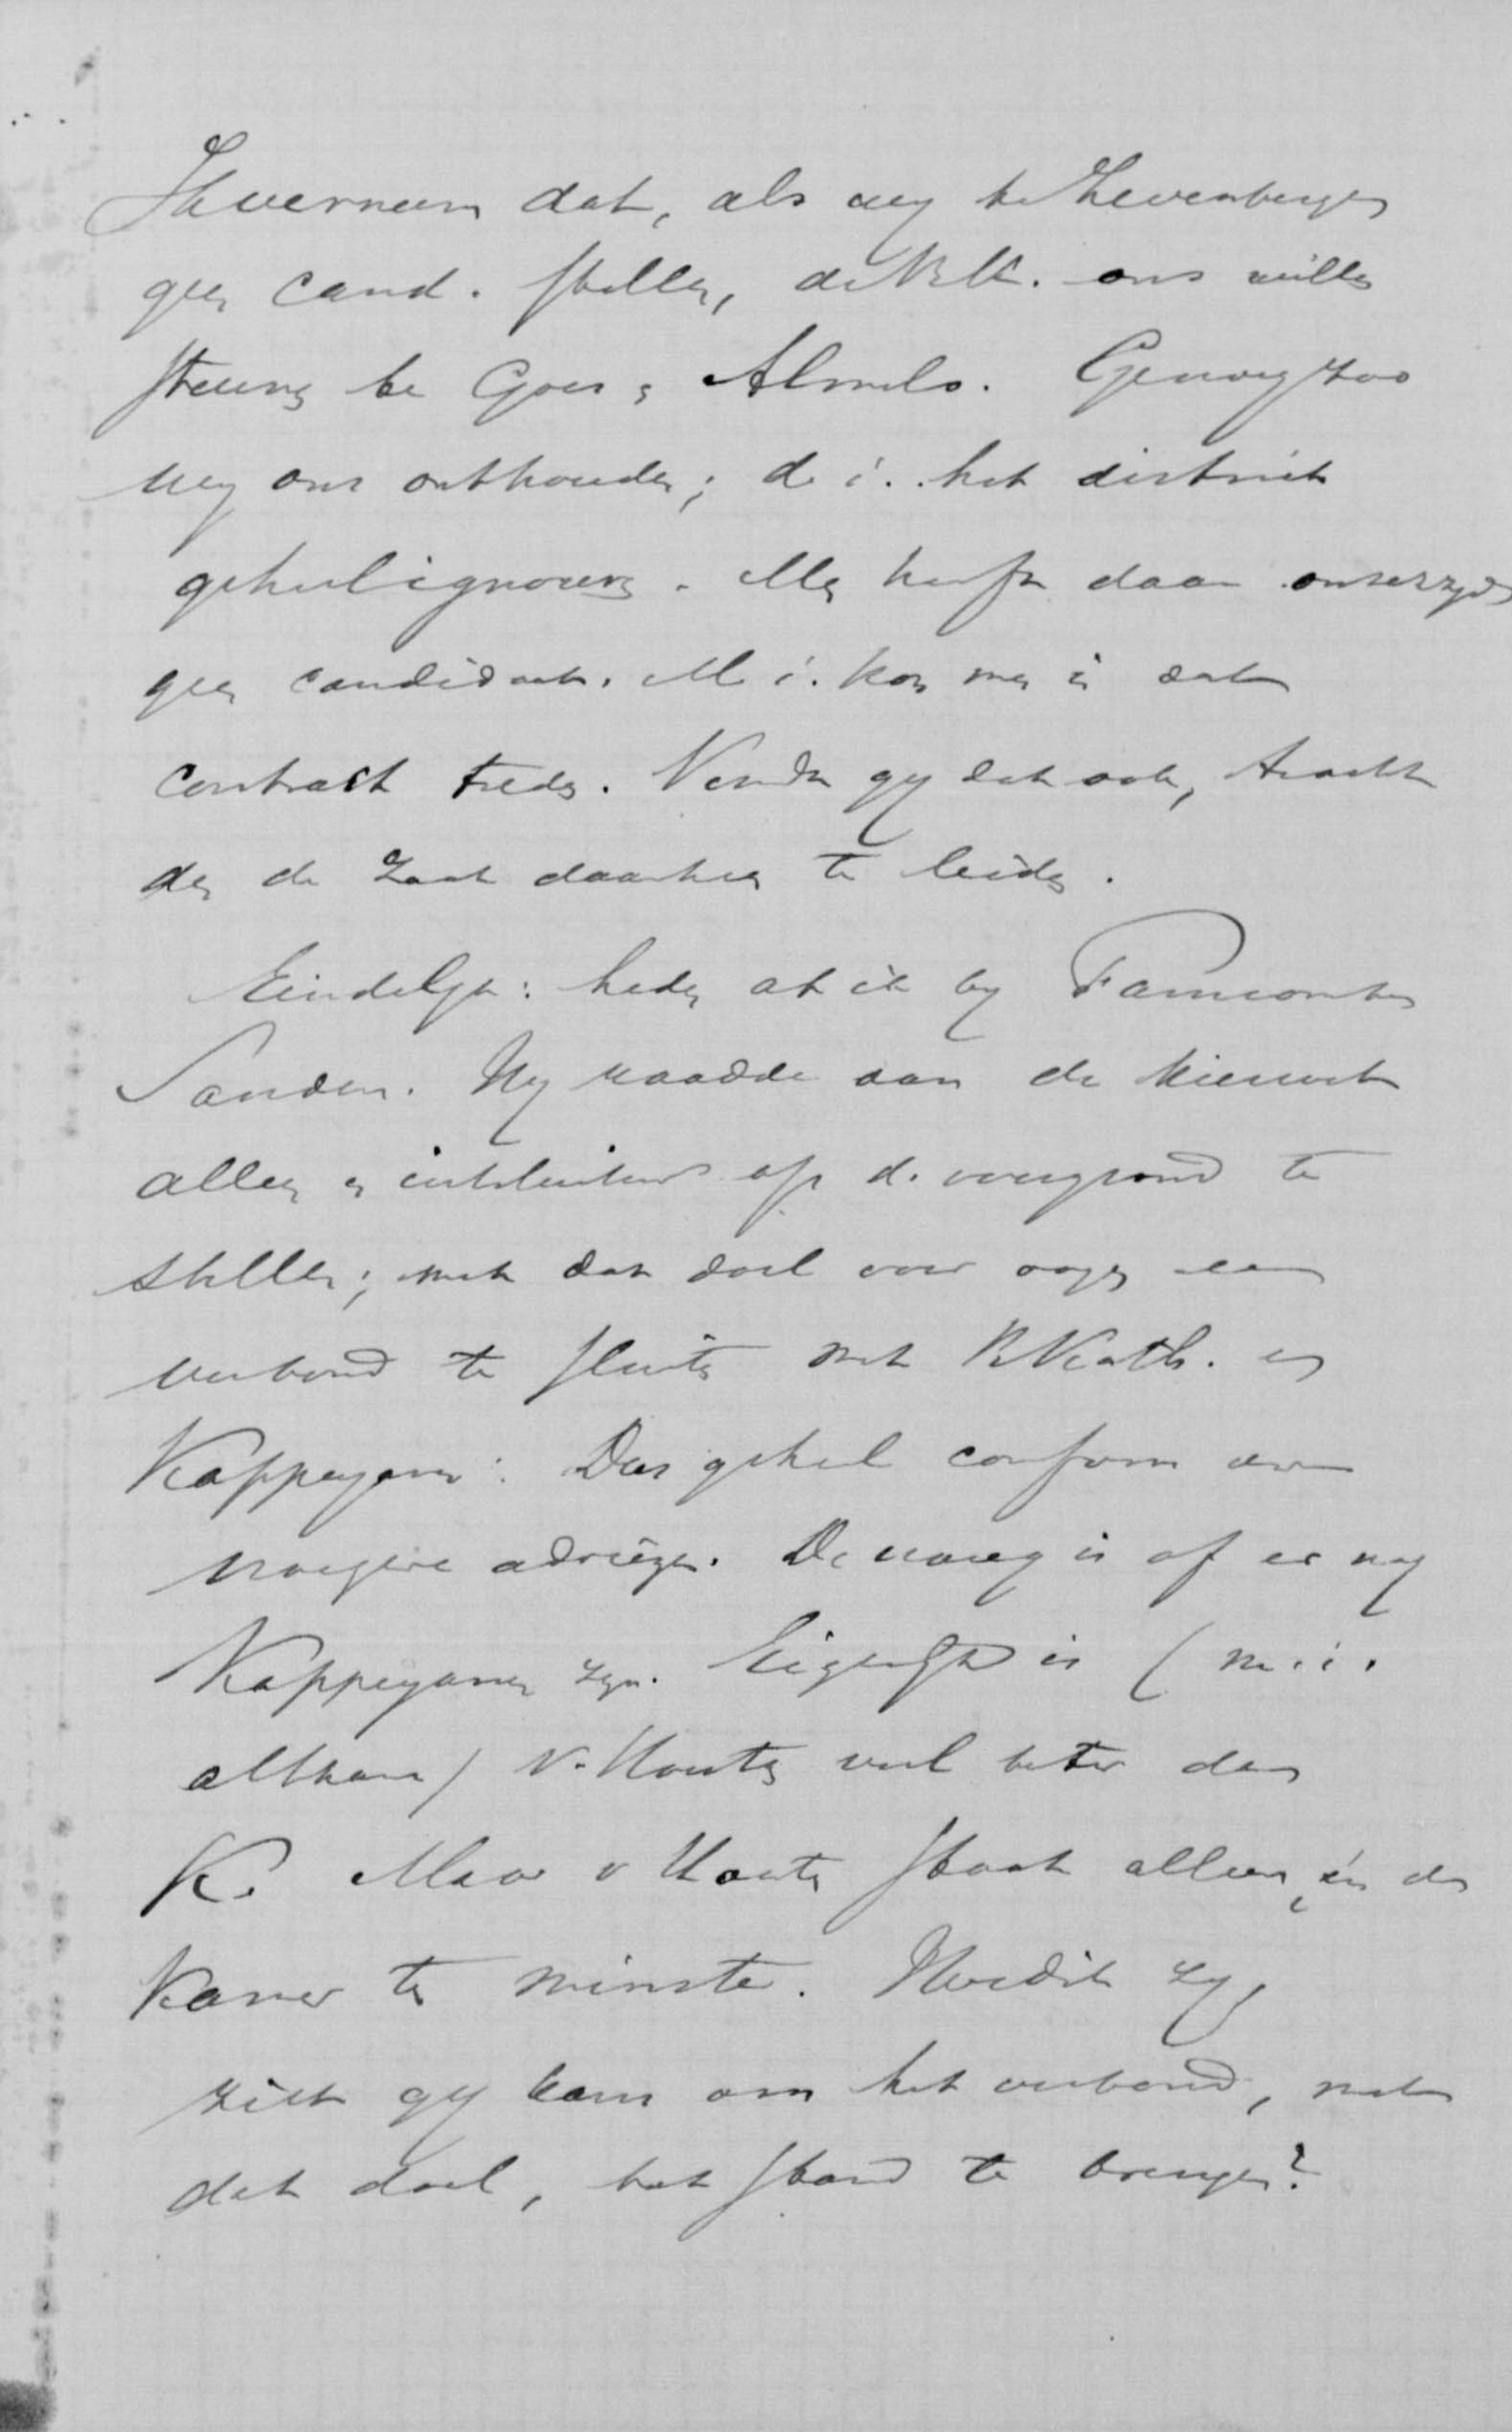 Ik verneem dat, als wij te Zevenbergen
geen cand. stellen, de RK. ons willen
steunen te Goes en Almelo. Genoeg zoo
wij ons onthouden; d. i. het district
geheel ignoreeren. Men heeft daar onzerzijds
geen candidaat. M. i. kon men in dat
contract treden. Vindt gij dat ook, tracht
dan de zaak daarheen te leiden.
Eindelijk: heden at ik bij Fabius met
Sander. Hij raadde aan de kieswet
alleen en uitsluitend op d. voorgrond te
stellen; met dat doel voor oogen een
verbond te sluiten met R Kath. en
Kappeyane: Dus geheel conform uw
vroegere adviezen. De vraag is of er nog
Kappeyanen zijn. Eigenlijk is (m. i.
althans) v. Houten veel beter dan
K. Maar v Houten staat alleen, in de
Kamer ten minste. Hoe dit zij,
ziet gij kans om het verbond, met
dat doel, tot stand te brengen?